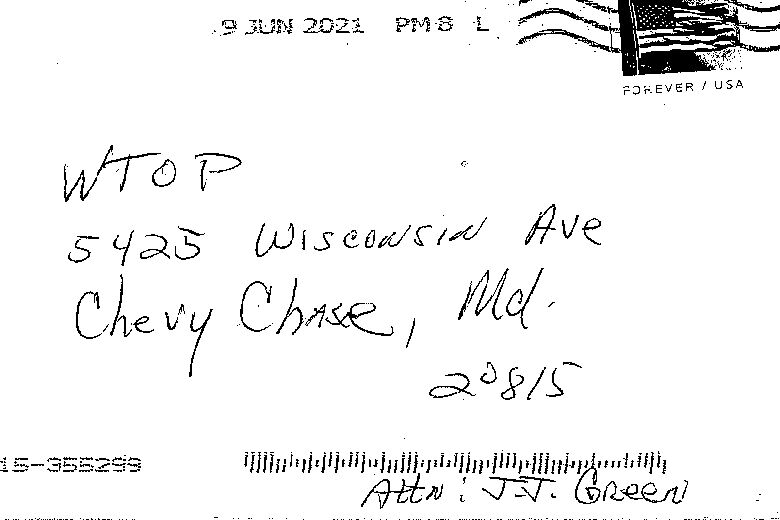 9 JUN 2021 PM 8 L
FOREVER / USA
WTOP
5425 Wisconsin Ave
Chevy Chase, Md.
20815
15-355299
Attn: J.J. Green